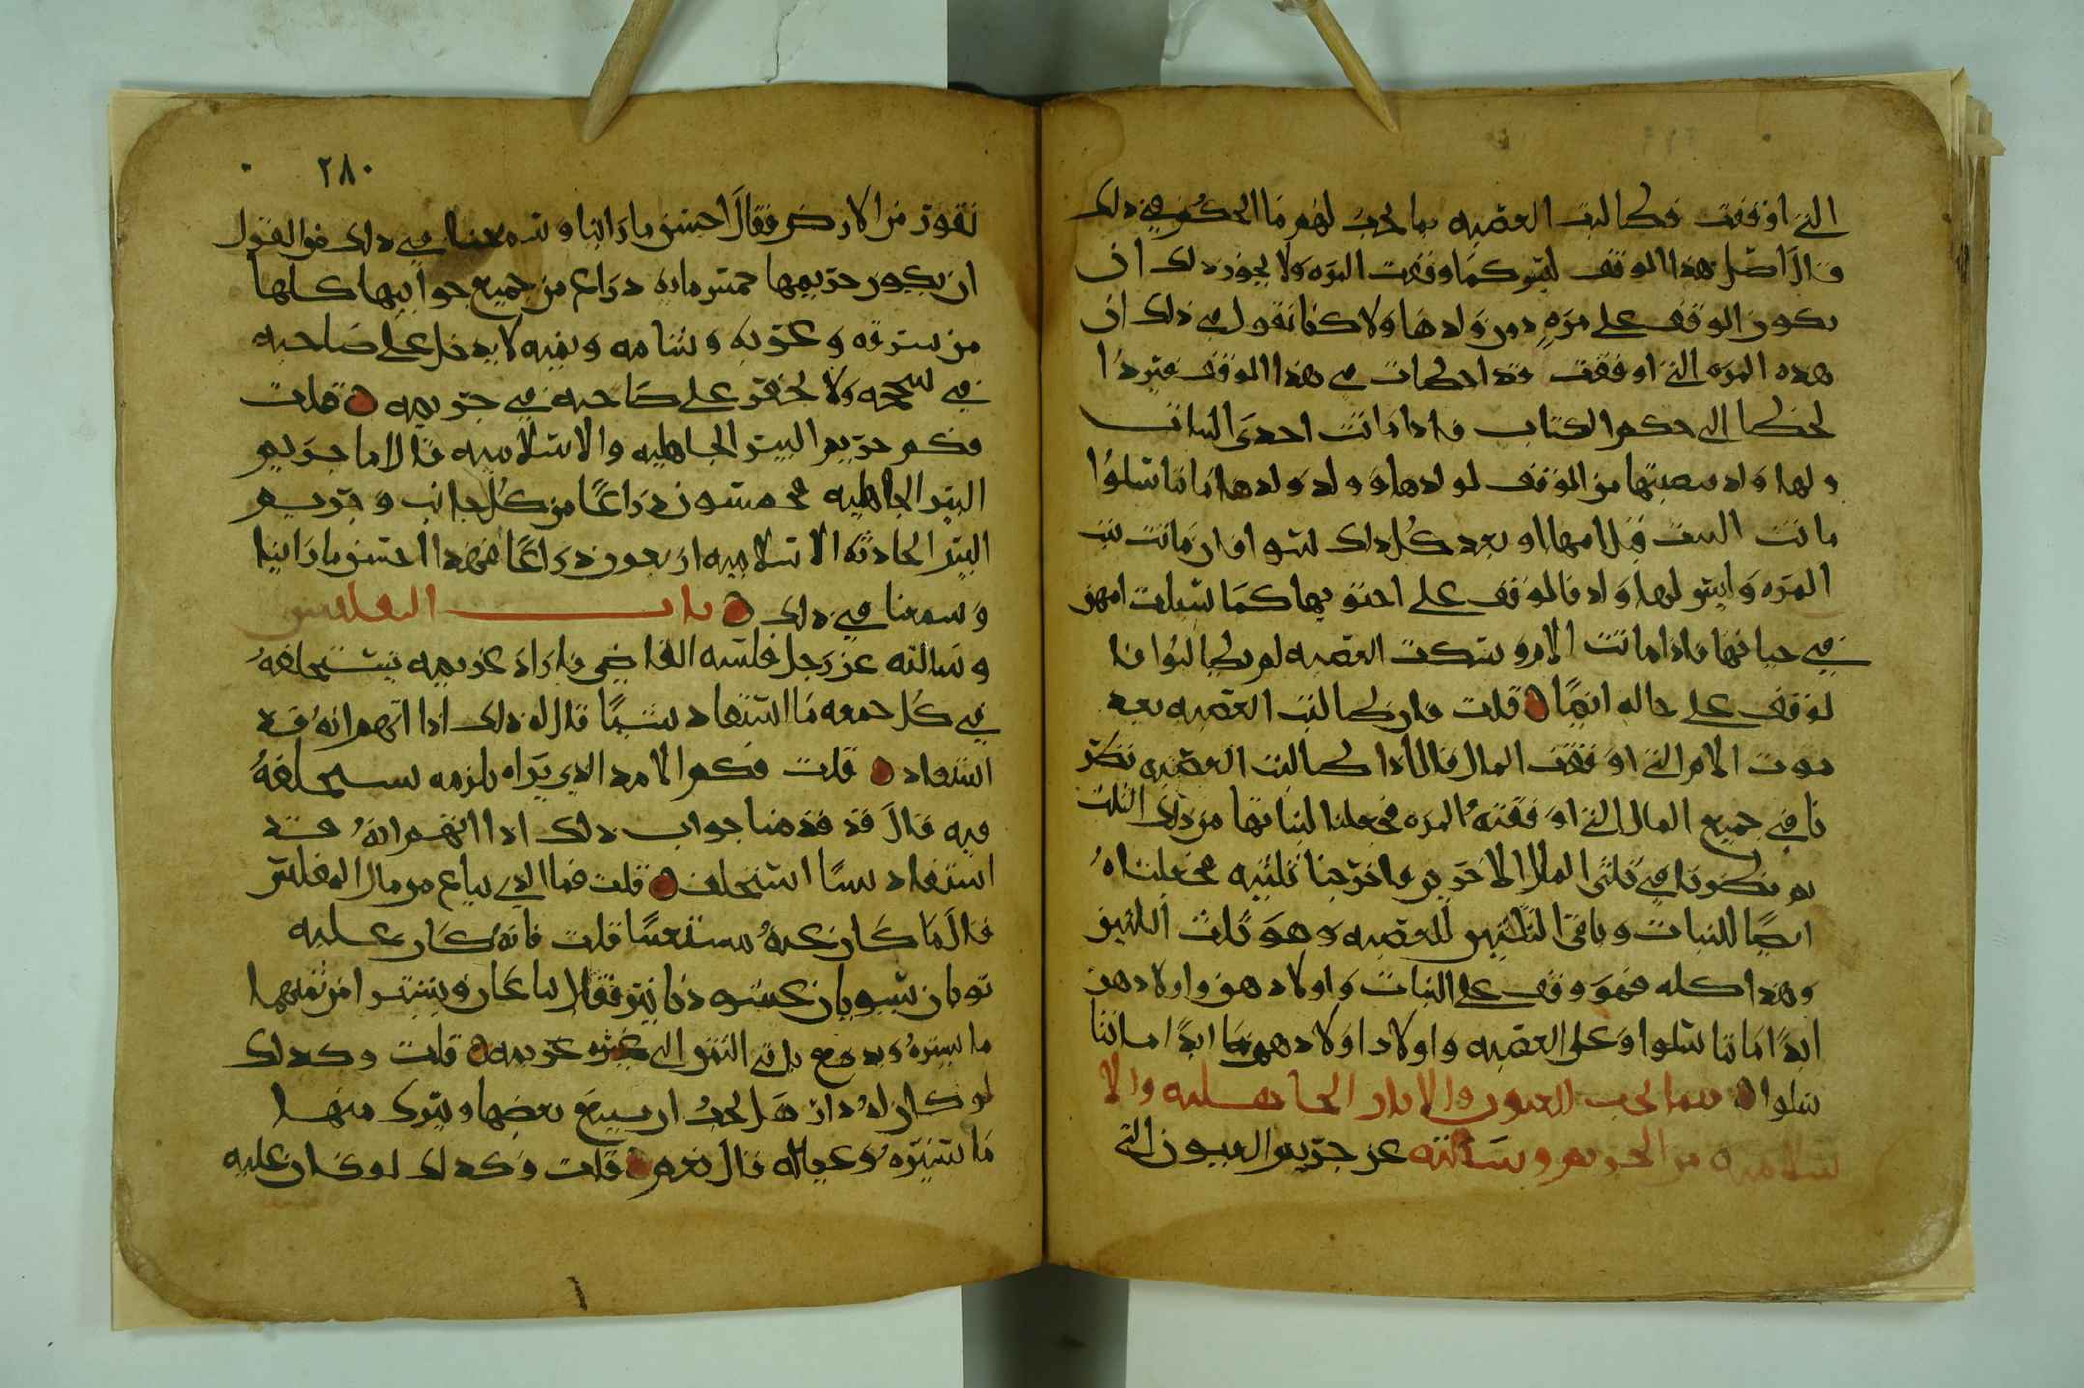 التي اوقفت فطالبت العصبه بما يجب لهم ما الحكم في ذلك
قال اصل هذا الوقف ليس كما وقفت المره ولا يجوز ذلك ان
يكون الوقف على مره دون ولدها ولاكنا نقول في ذلك ان
هذه المره التي اوقفت قد اخطات في هذا الوقف فيرد
خطا الى حكم الكتاب فاذا ماتت احدى البنات
ولها ولد فنصيبها من الوقف لولدها وولد ولدها ما تناسلوا
ماتت البنت قبل امها او بعد كل ذلك سوا وان ماتت بنت
المره وليس لها ولد فالموقف على اخوتها كما سبلت امهن
في حياتها فاذا ماتت الام وسكت العصبه لم يطالبوا فا
لوقف على حاله ايضا قلت فان طالبت العصبه بعد
موت الام التي اوقفت المال قال اذا طالبت العصبه نظر
نا في جميع المال التي اوقفته المره فجعلنا لبناتها من ذلك الثلث
ثم نظرنا في ثلثي المال الاخرين فاخرجنا ثلثيه فجعلناه
ايضا للبنات وباقي الثلثين للعصبه وهو ثلث الثلثين
وهذا كله فهو وقف على البنات واولادهن واولادهن
ابدا ما تناسلوا وعلى العصبه واولاد اولادهم ابدا ما تنا
سلوا فيما يجب للعيون والابار الجاهليه والا
سلاميه من الحريم وسالته عن حريم العيون التي
٢٨٠
تفور من الارض فقال احسن ما راينا وسمعنا في ذلك هو القول
ان يكون حريمها خمس مايه ذراع من جميع جوانبها كلها
من شرقه وغربه وشامه ويمنه لا يدخل على صاحبه
في ولا يحفر على صاحبه في حريمه قلت
فكم حريم البير الجاهليه والاسلاميه قال اما حريم
البير الجاهليه فخمسون ذراعا من كل جانب وحريم
البير الحادثه الاسلاميه اربعون ذراعا فهذا احسن ما راينا
وسمعنا في ذلك باب التفليس
وسالته عن رجل فلسه القاضي فاراد غريمه يستحلفه
في كل جمعه ما استفاد شيا قال له ذلك اذا اتهم انه قد
استفاد قلت فكم الامد الذي يراه يلزمه يستحلفه
فيه قال قد قدمنا جواب ذلك اذا اتهم انه قد
استفاد شيا استحلف قلت فما الذي يباع من مال المفلس
قال ما كان عنه مستغنيا قلت فانه كان عليه
ثوبان يسويان عشره دنانير فقال يباعان ويشترا من ثمنهما
ما يستره ويدفع باقي الثمن الى غريمه قلت وكذلك
لو كان له دار هل يجب ان يبيع بعضها ويترك منها
ما يستره وعياله قال نعم قلت وكذلك لو كان عليه